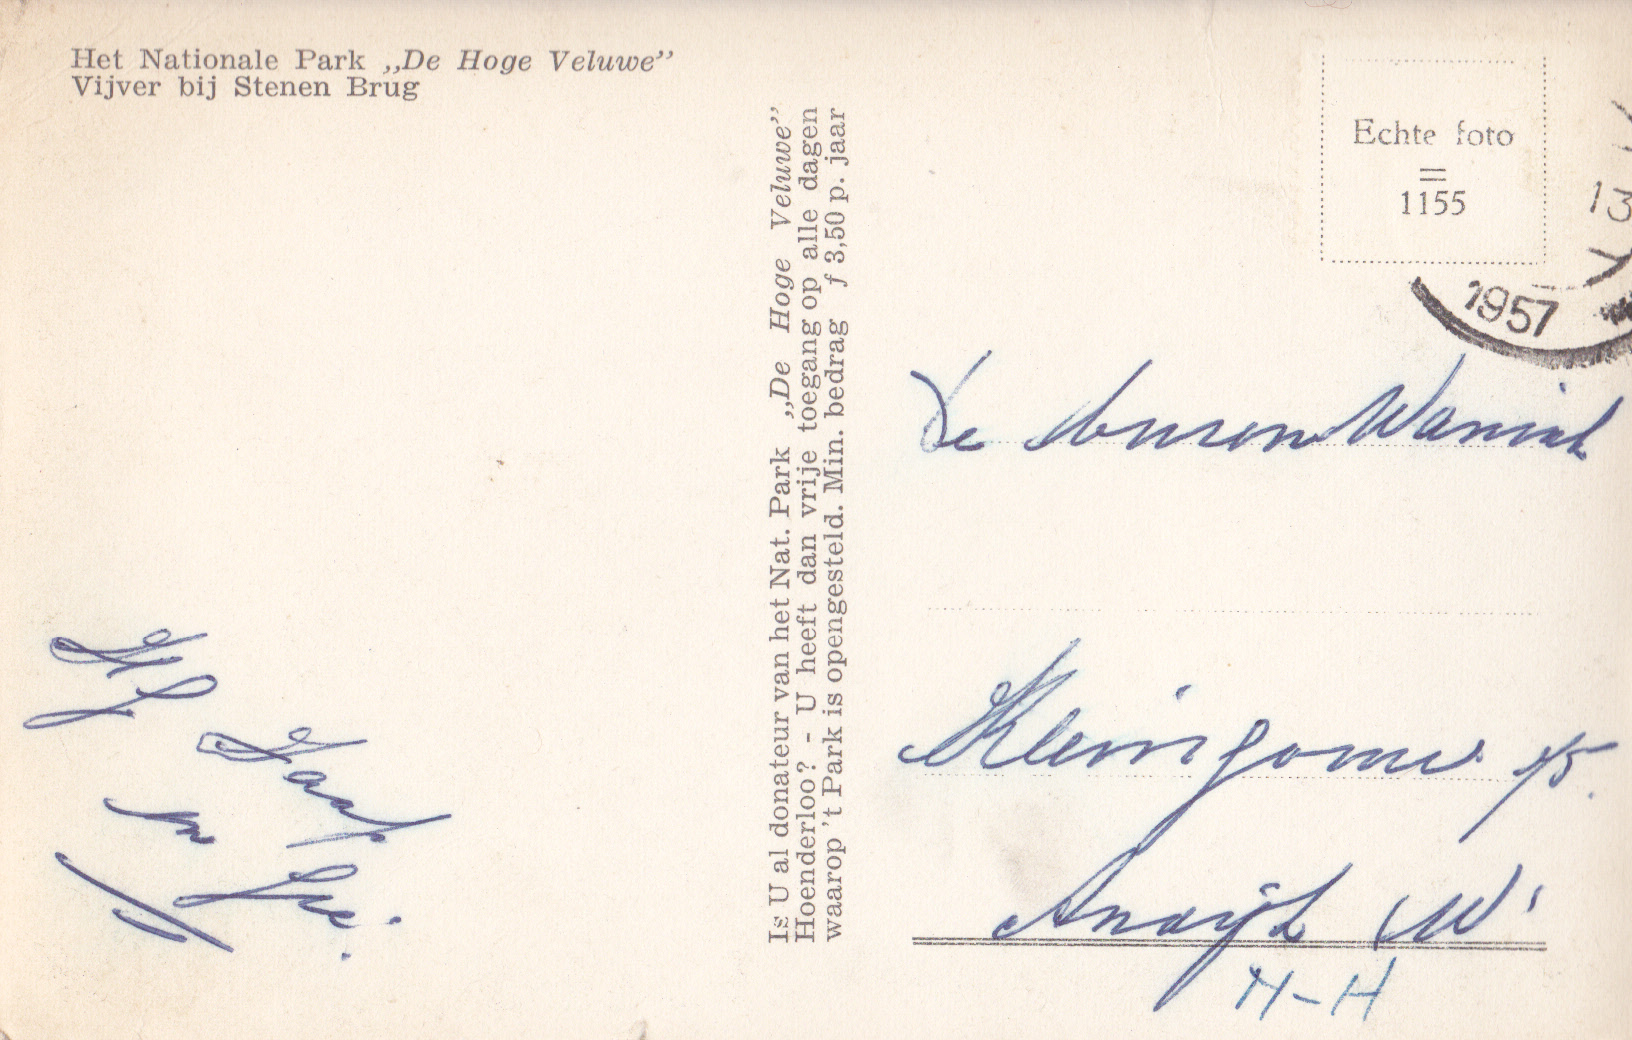 Het Nationale Park „De Hoge Veluwe”
Vijver bij Stenen Brug
Is U al donateur van het Nat. Park „De Hoge Veluwe”
Hoenderloo? - U heeft dan vrije toegang op alle dagen
waarop 't Park is opengesteld. Min. bedrag f 3,50 p. jaar
Echte foto
1155
13
1957
De
Andijk (W
N-H
Jaap
en